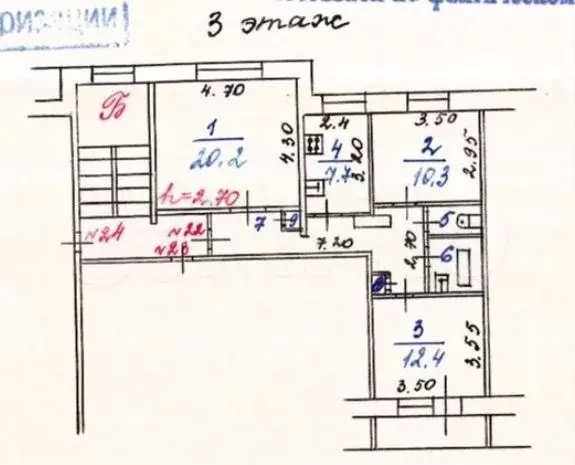 3 этаж
Б
4.70
1
20,2
4.30
h=2,70
2.4
4
7.7
3.20
3.50
2
10,3
2.95
№24
№22
№23
7
9
7.20
2.70
5
6
8
3
12,4
3.55
3.50